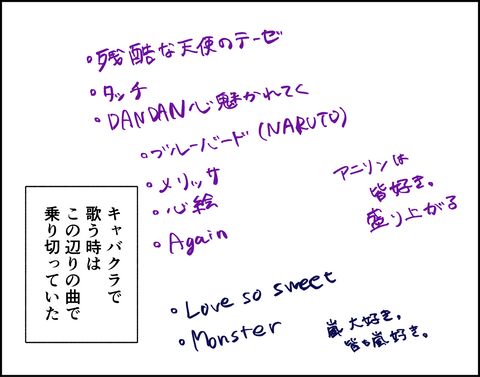 ・残酷な天使のテーゼ
・タッチ
・DANDAN心魅かれてく
・ブルーバード(NARUTO)
・メリッサ
・心絵
・Again
アニソンは
皆好き。
盛り上がる
・Love so sweet
・Monster
嵐大好き。
皆も嵐好き。
キャバクラで
歌う時は
この辺りの曲で
乗り切っていた